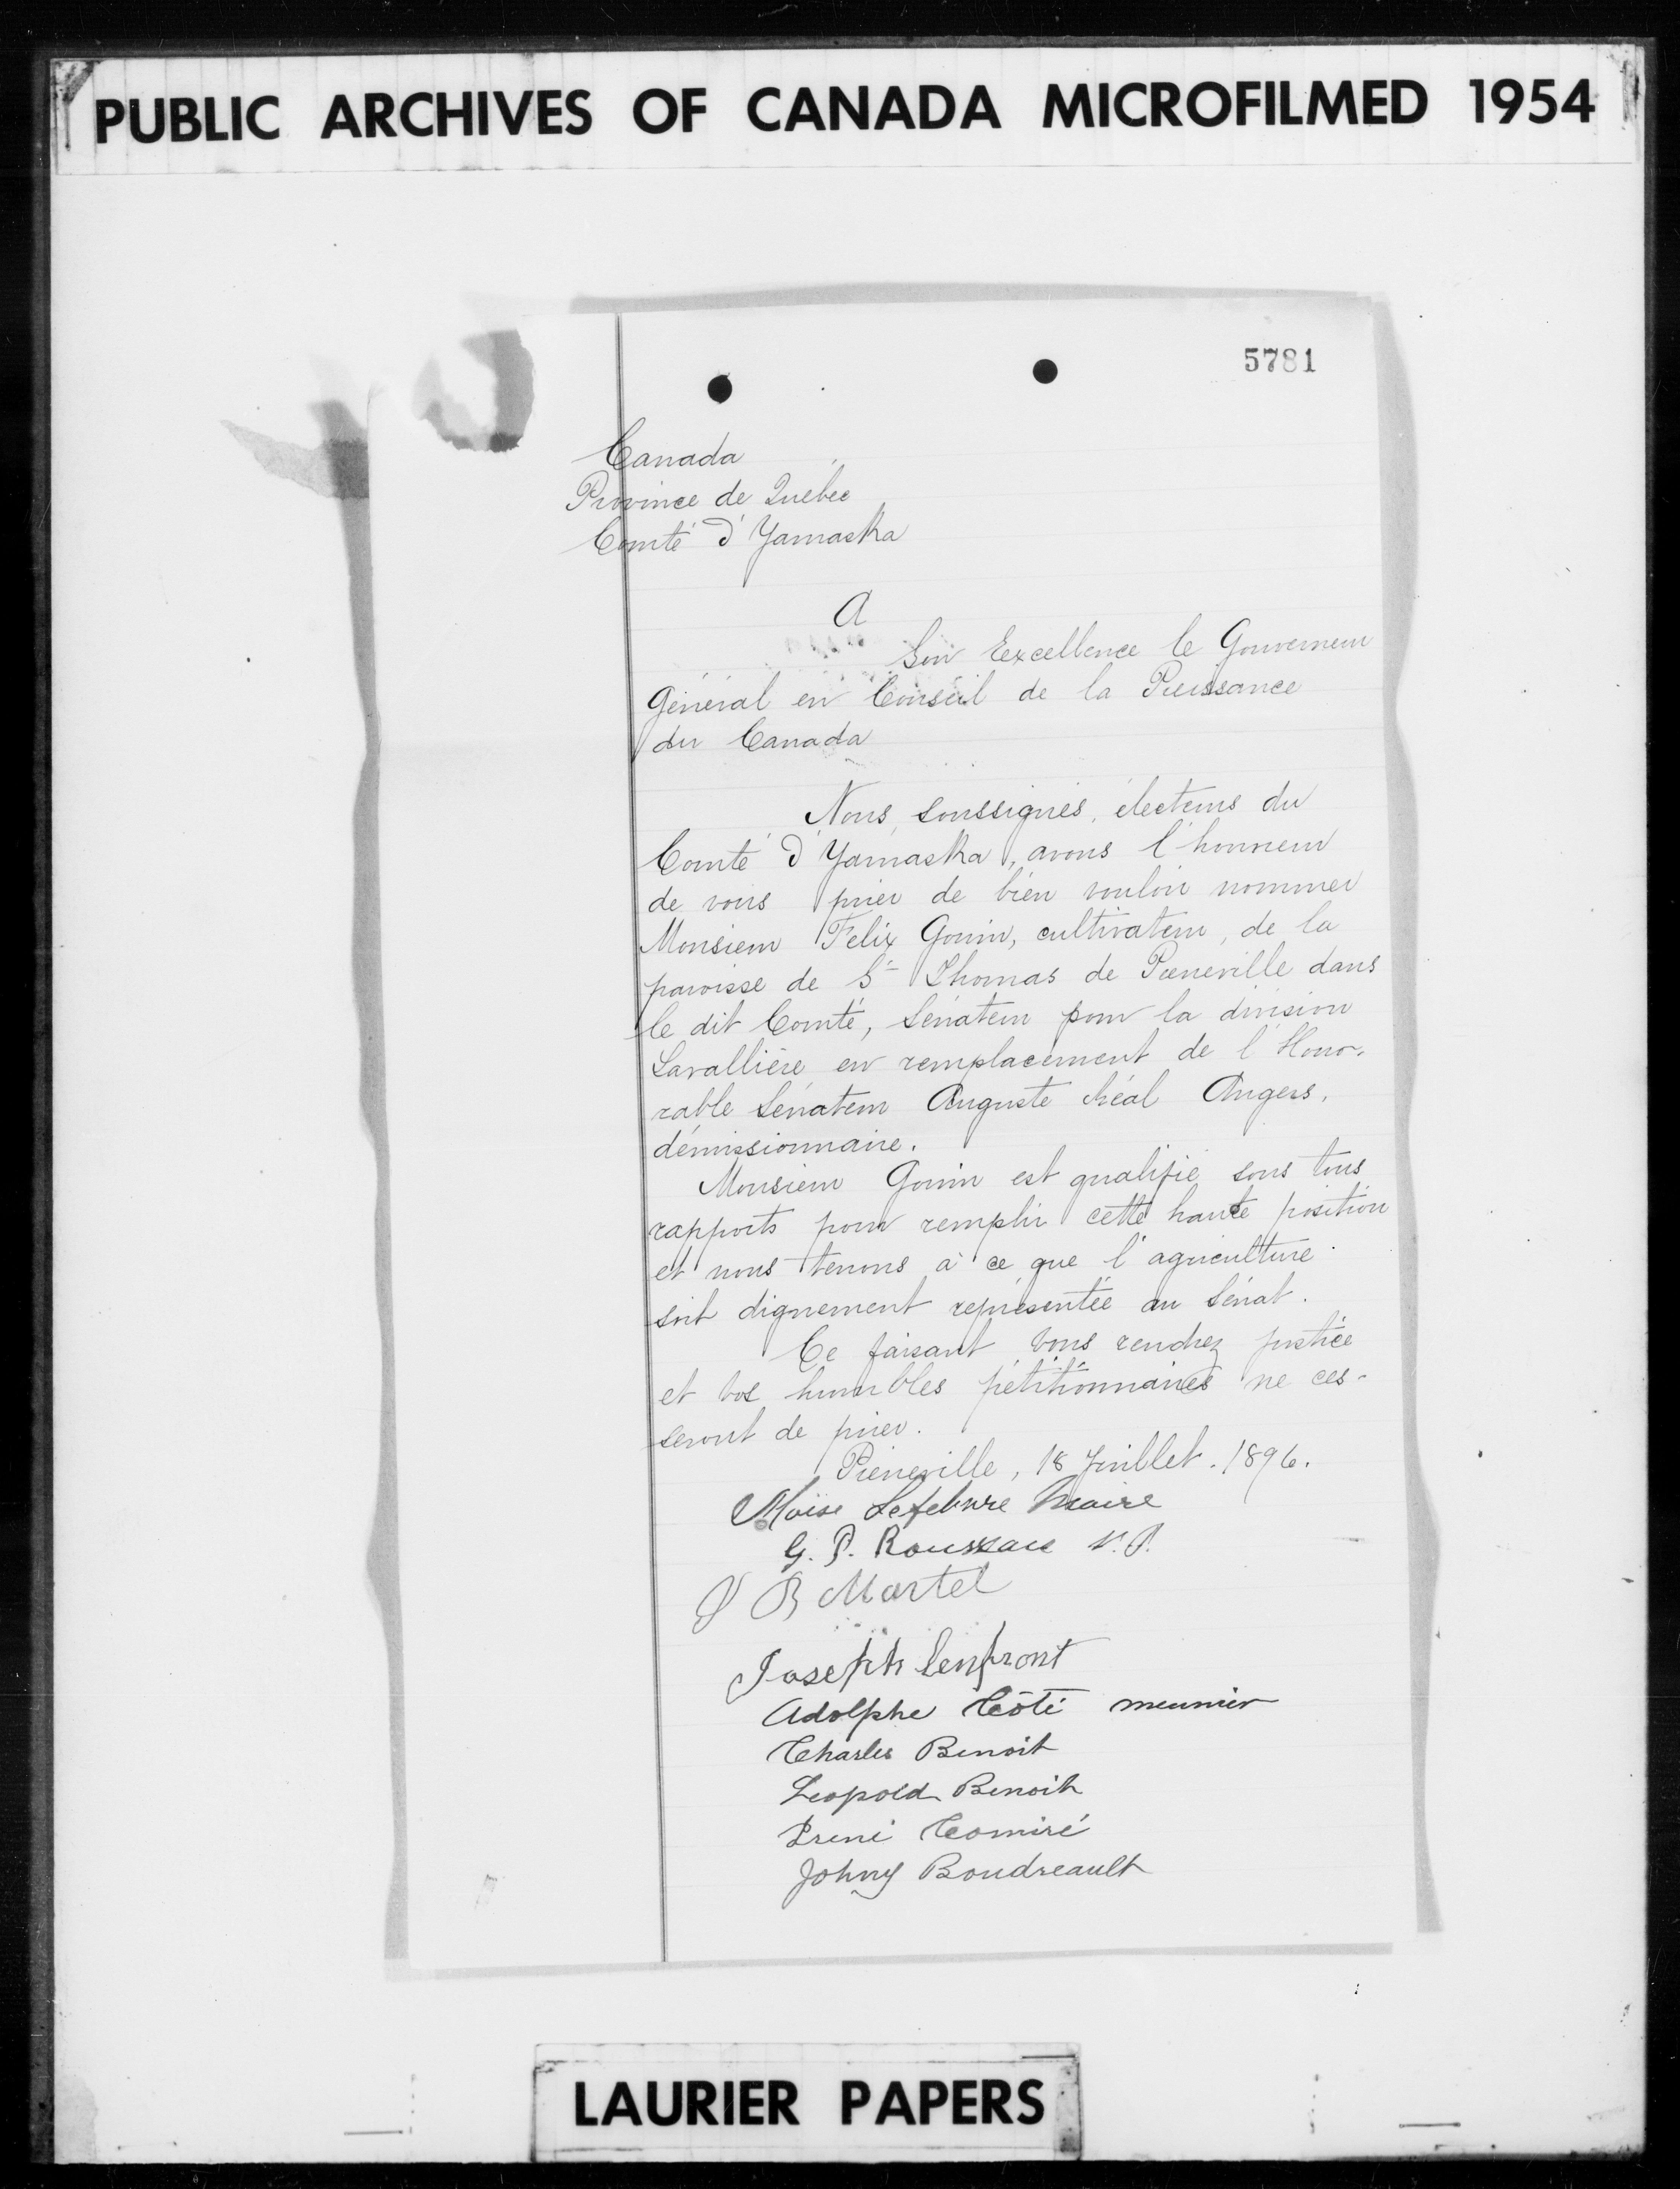 PUBLIC ARCHIVES OF CANADA MICROFILMED 1954
5781
Canada
Province de Québec
Comté d'Yamaska
A
Son Excellence le Gouverneur
Général en Conseil de la Puissance
du Canada
Nous, soussignés, électeurs du
Comté d'Yamaska, avons l'honneur
de vous prier de bien vouloir nommer
Monsieur Felix Gouin, cultivateur, de la
paroisse de St Thomas de Pierreville dans
le dit Comté, Sénateur pour la division
Lavallière en remplacement de l'Hono-
rable Sénateur Auguste Réal Angers,
démissionnaire.
Monsieur Gouin est qualifié sous tous
rapports pour remplir cette haute position
et nous tenons à ce que l'agriculture
soit dignement représentée au Sénat.
Ce faisant vous rendrez justice
et vos humbles pétitionnaires ne ces-
seront de prier.
Pierreville, 18 Juillet. 1896.
Moïse Lefebvre Maire
G. P. Rousseau
Martel
Joseph
Adolphe Côté meunier
Charles Benoit
Leopold Benoit
Irené Comiré
Johny Boudreault
LAURIER PAPERS